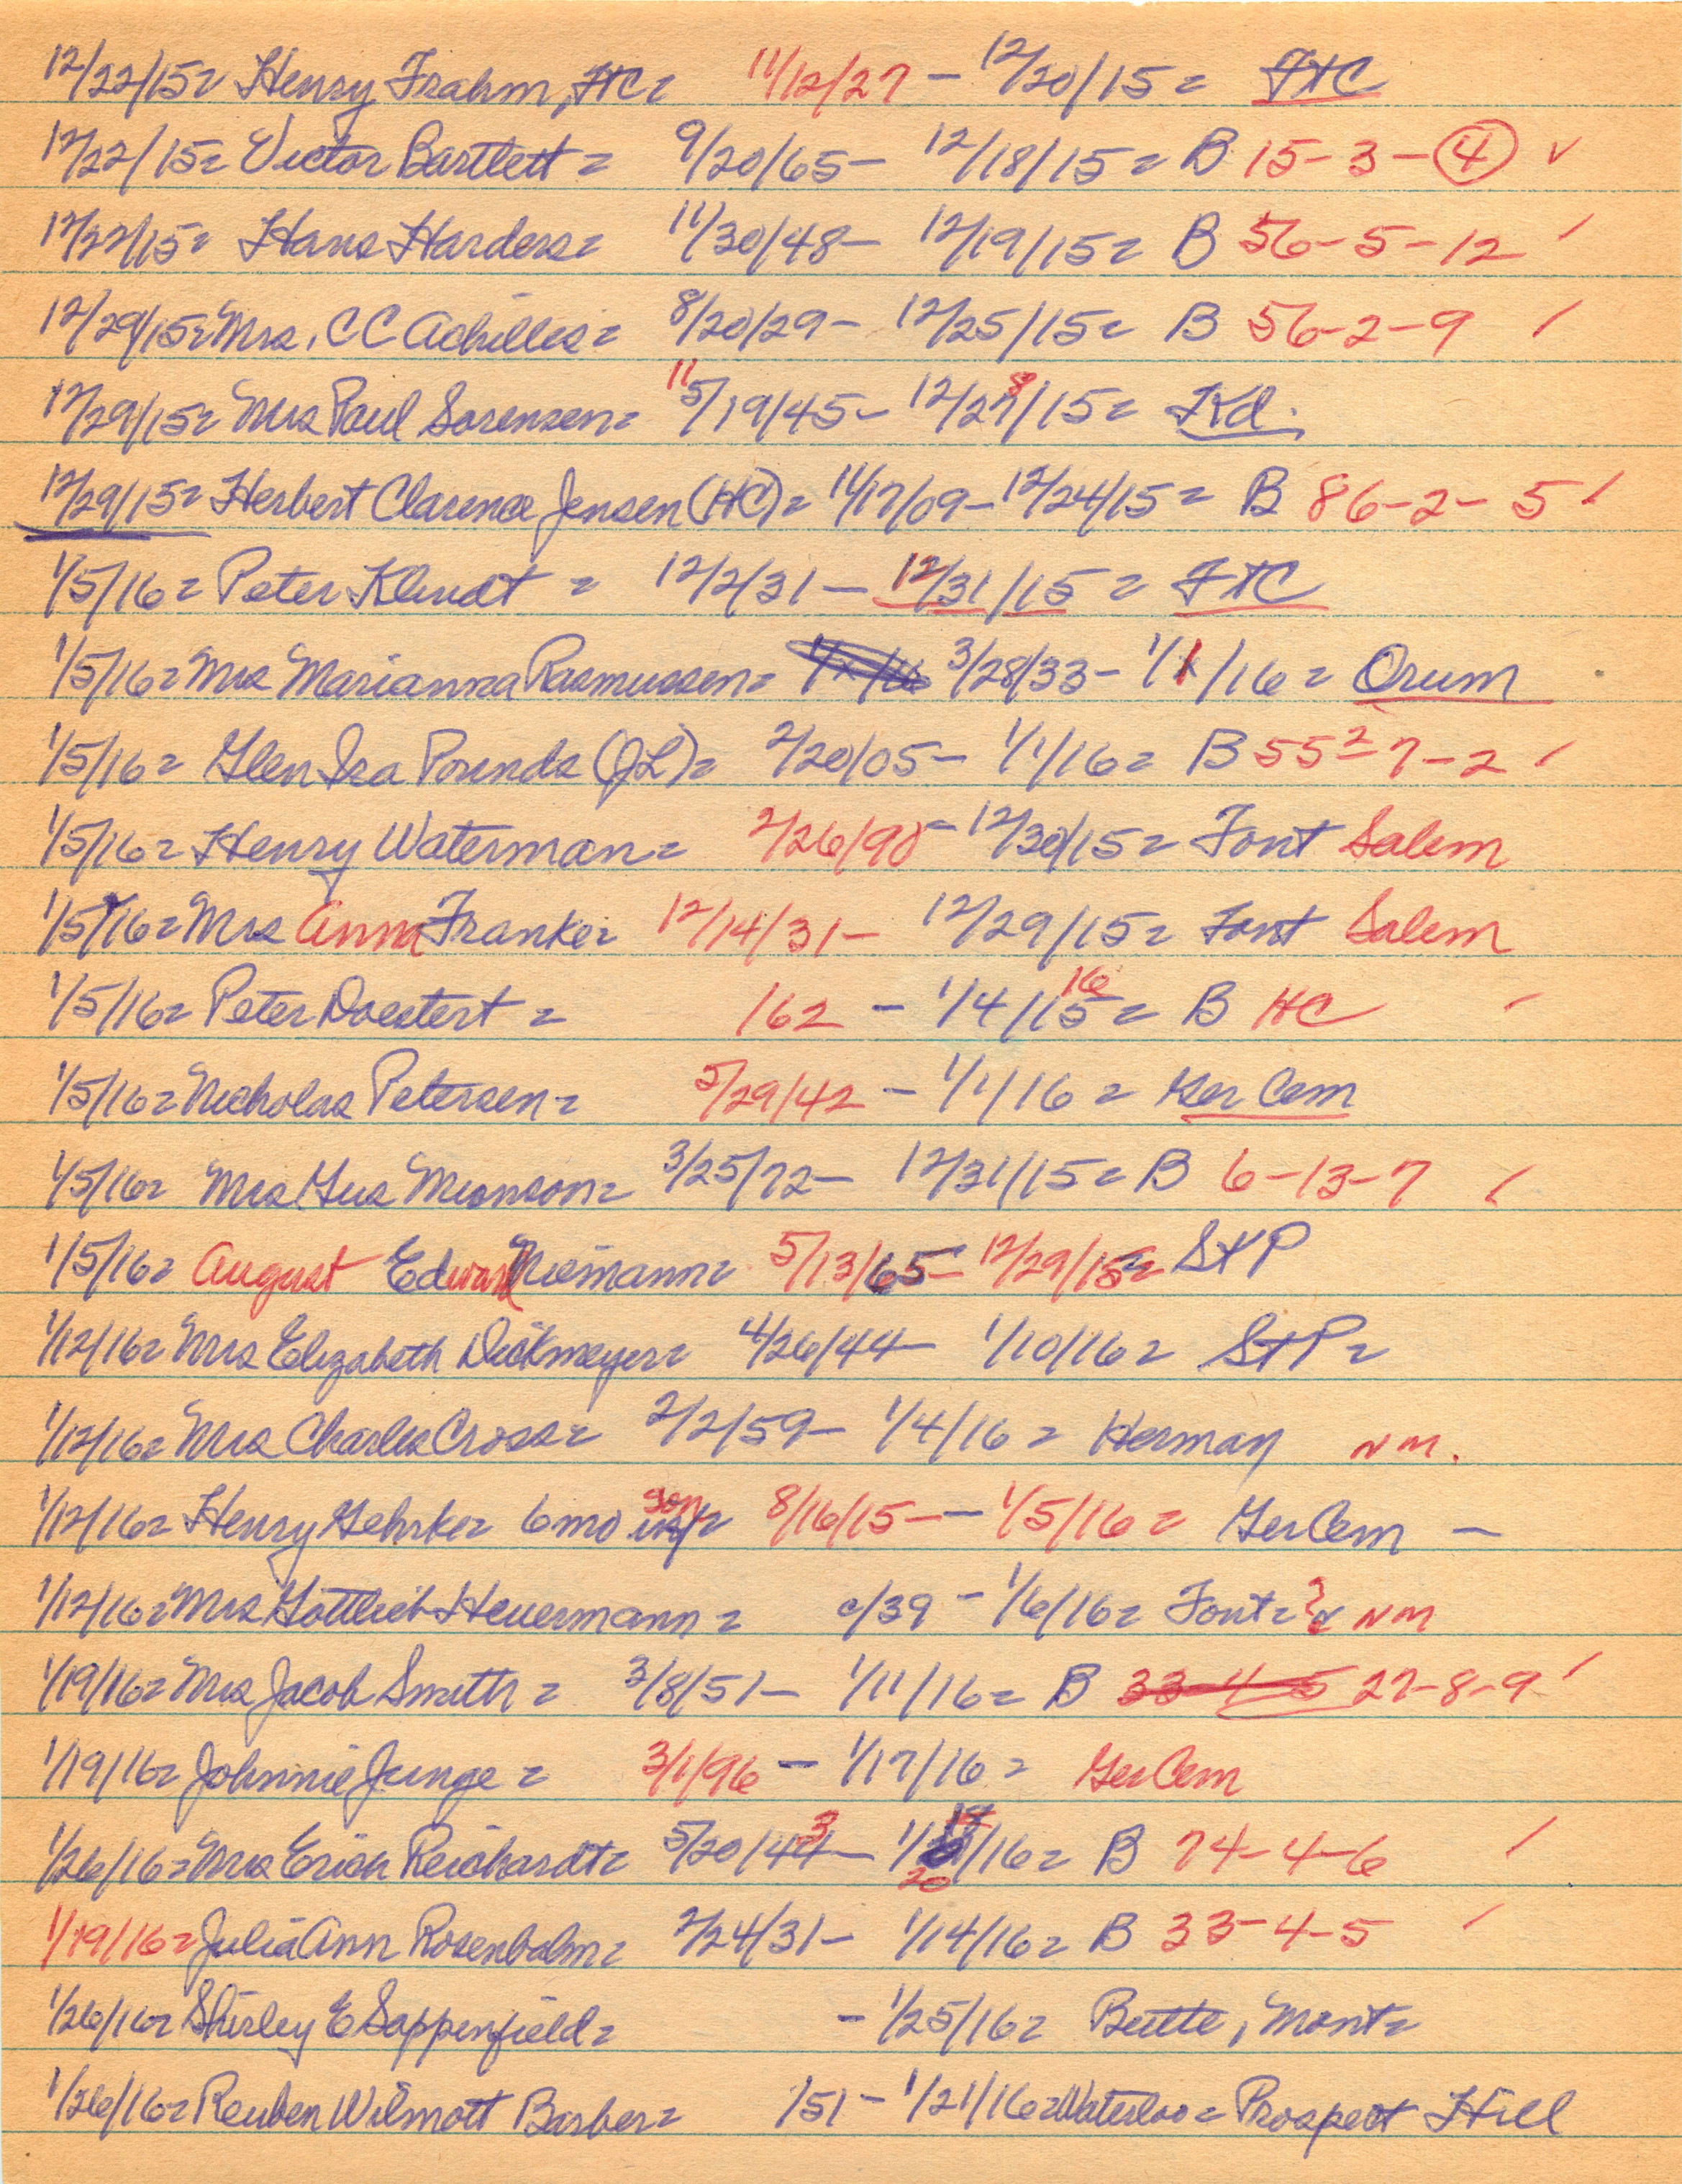 12/22/15= Henry Frahm, FTC= 11/12/27 - 12/20/15 = FTC
12/22/15= Victor Bartlett = 9/20/65- 12/18/15 = B 15-3-4 ✓
12/22/15= Hans Harders= 11/30/48- 12/19/15= B 56-5-12 ✓
12/29/15= Mrs. CC Achilles= 8/20/29- 12/25/15= B 56-2-9 ✓
12/29/15= Mrs Paul Sorensen= 11 5/19/45- 12/27 8/15= Kd.
12/29/15= Herbert Clarence Jensen (HC)= 11/17/09- 12/24/15= B 86-2-5 ✓
1/5/16= Peter Klindt = 12/2/31- 12/31/15 = FTC
1/5/16= Mrs Marianna Rasmussen= 3/28/33- 1/1/16= Orum
1/5/16= Glen Ira Pounds (JL)= 2/20/05- 1/1/16= B 55 2-7-2 ✓
1/5/16= Henry Waterman= 2/26/90 - 12/30/15= Font Salem
1/5/16= Mrs Anna Franke= 12/14/31- 12/29/15= Font Salem
1/5/16= Peter Doestert = 162 - 1/4/15 16 = B HC ✓
1/5/16= Nicholas Petersen= 5/29/42 - 1/1/16 = Ger Cem
1/5/16= Mrs Gus Monson= 3/25/72- 12/31/15= B 6-13-7 ✓
1/5/16= August Edward Niemann= 5/13/65- 12/29/15= St P
1/12/16= Mrs Elizabeth Dickmeyer= 4/26/44- 1/10/16= St P=
1/12/16= Mrs Charles Cross= 2/2/59- 1/4/16 = Herman NM.
1/12/16= Henry Gehrke= 6 mo inf son= 8/16/15-- 1/5/16= Ger Cem -
1/12/16= Mrs Gottlieb Heuermann = c/39 - 1/6/16= Font= ? NM
1/19/16= Mrs Jacob Smith = 3/8/51- 1/11/16= B 33-4-5 27-8-9 ✓
1/19/16= Johnnie Junge = 3/1/96 - 1/17/16= Ger Cem
1/26/16= Mrs Erich Reichardt= 5/20/44 3- 1/20/16= B 74-4-6 ✓
1/19/16= Julia Ann Rosenbalm= 2/24/31- 1/14/16= B 33-4-5 ✓
1/26/16= Shirley E Sappenfield= - 1/25/16= Butte, Mont=
1/26/16= Reuben Wilmott Barber= /51- 1/21/16= Waterloo= Prospect Hill